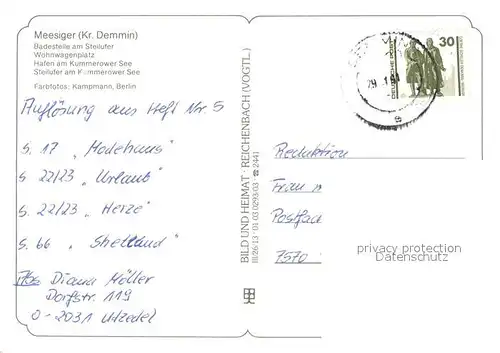 Meesiger (Kr. Demmin)
Badestelle am Steilufer
Wohnwagenplatz
Hafen am Kummerower See
Steilufer am Kummerower See
Farbfotos: Kampmann, Berlin
Auflösung aus Heft Nr. 5
S. 17 „Modehaus"
S 22/23 „Urlaub"
S. 22/23 „Herze"
S. 66 „Shetland"
Abs Diana Möller
Dorfstr. 119
O-2031 Utzedel
BILD UND HEIMAT · REICHENBACH (VOGTL.)
III/26/13 · 01 03 0293/03 · ☎ 2441
DEUTSCHE POST
30
Redaktion
Frau
Postfac
7570
privacy protection
Datenschutz